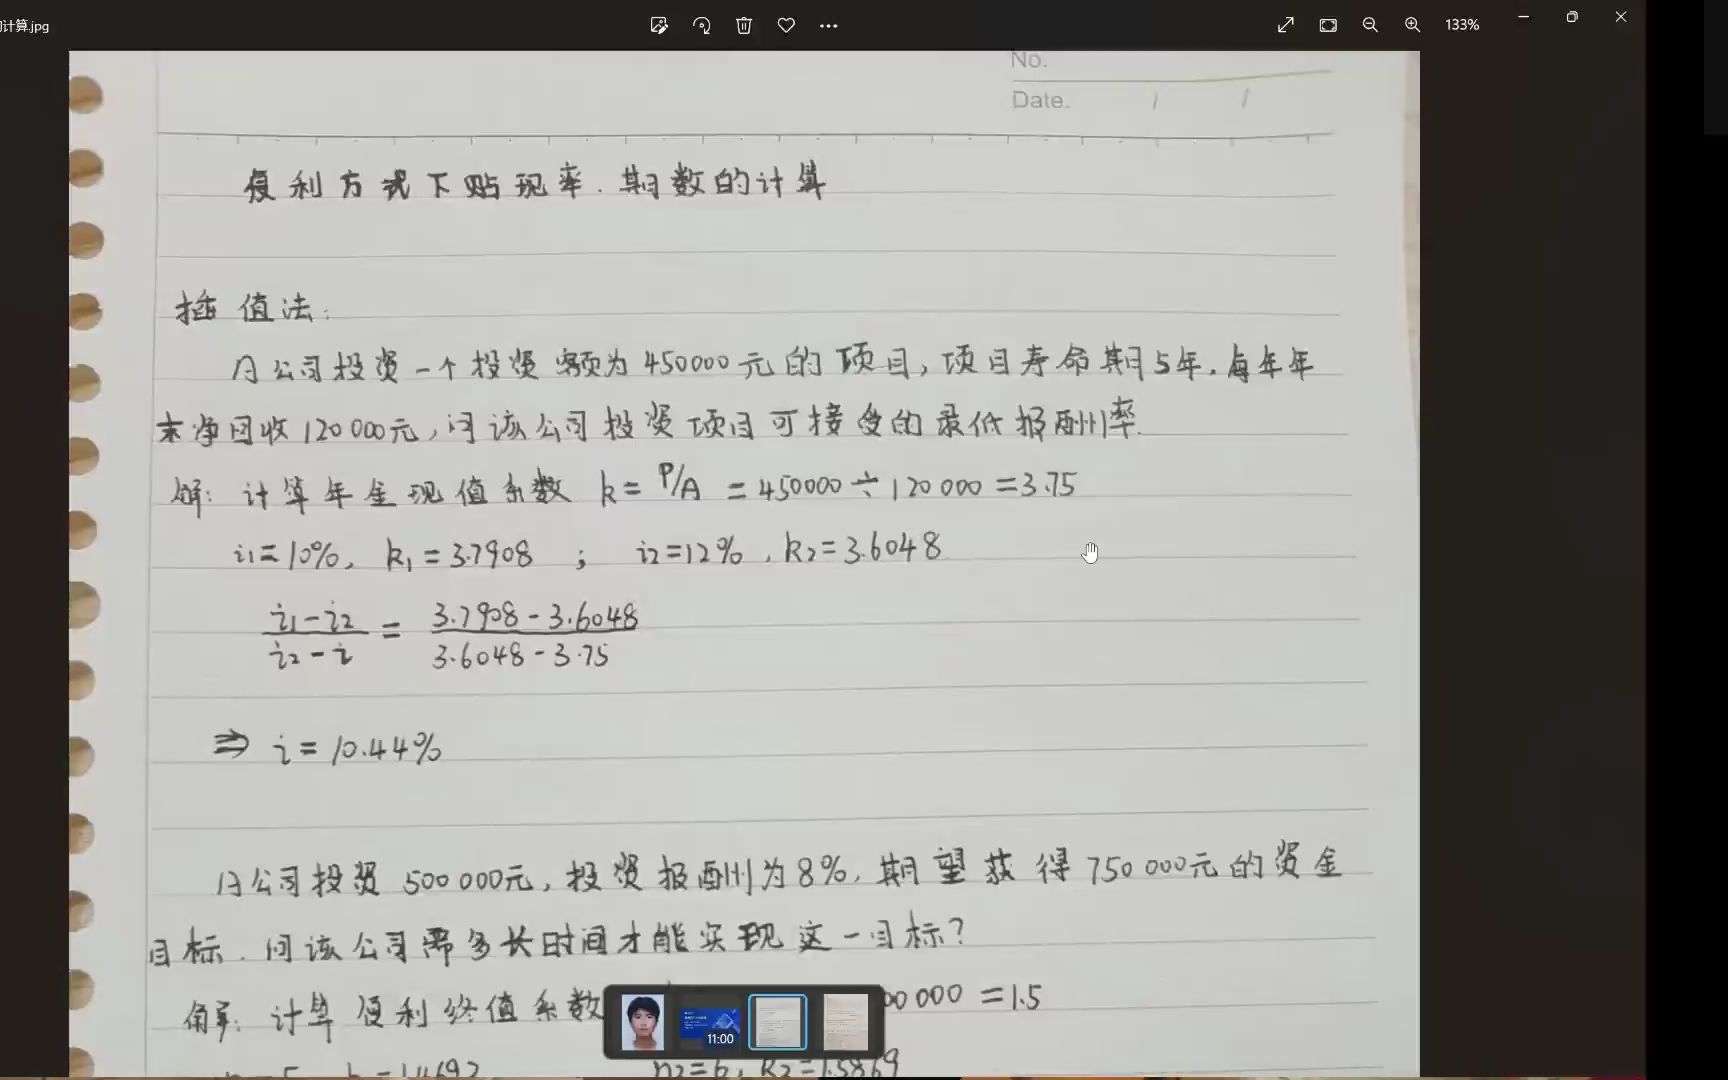 计算.jpg
133%
No.
Date. / /
复利方式下贴现率.期数的计算
插值法:
A公司投资一个投资额为450000元的项目,项目寿命期5年,每年年
末净回收120000元,问该公司投资项目可接受的最低报酬率.
解: 计算年金现值系数 k = P/A = 450000 ÷ 120 000 = 3.75
i1 = 10%, k1 = 3.7908 ; i2 = 12%, k2 = 3.6048
i1 - i2 / i2 - i = 3.7908 - 3.6048 / 3.6048 - 3.75
⇒ i = 10.44%
A公司投资 500 000元, 投资报酬为8%, 期望获得750 000元的资金
目标. 问该公司需多长时间才能实现这一目标?
解: 计算复利终值系数 00 000 = 1.5
11:00
k = 1.4693 n2 = 6, k2 = 1.5869